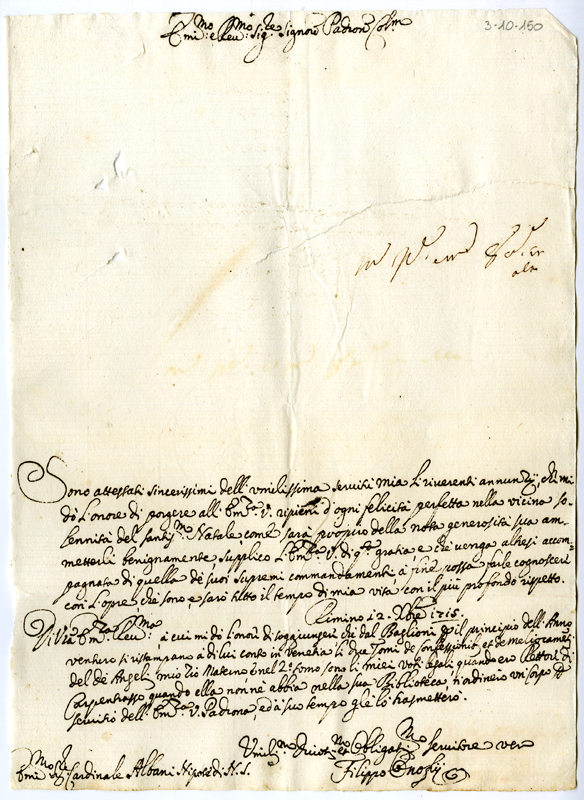 3-10-150
Em:mo e Rev:mo Sig.re Signore Padron Col.mo
Sono attestati sincerissimi dell'umilissima servitù mia li riverenti annunzij, che mi
dò l'onore di porgere all'Em:za V. ripieni d'ogni felicità perfetta nella vicina so-
lennità del Santiss.mo Natale, com'è sarà proprio della nota generosità sua am-
metterli benignamente, supplico l'Em:za V. di q.ta gratia, e che venga altresi accom-
pagnata di quella dè suoi supremi commandamenti, à fine possa farle conoscere
con l'opre che sono, e sarò tutto il tempo di mia vita con il più profondo rispetto.
Di V.ra Em:za Rev:ma Rimino 12. Xbre 1715.
à cui mi dò l'onor di soggiungere che dal Baglioni il principio dell'Anno
venturo si ristampano à di lui conto in Venetia li due Tomi de Confessionis, et de
del de Angelis mio Zio Materno, e nel 2.o tomo sono li miei voti legali quando ero Rettore di
Carpentrasso, quando ella non nè abbia nella sua Biblioteca, n'ordinerò un corpo
servitio dell'Em:za V. Padrona, ed à suo tempo glè lò trasmetterò.
Umilis.mo Divot.mo et Obligatis.mo servitore vero
Em:mo Sig.re Cardinale Albani Nipote di N.S. Filippo